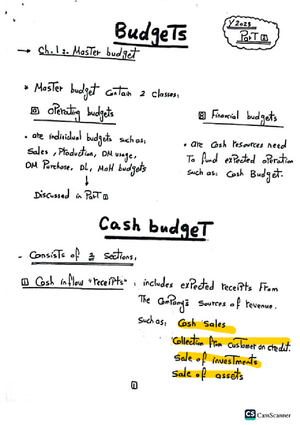 Budgets
Y2023
Part 2
→ Ch.1: Master budget
* Master budget contain 2 classes:
1 operating budgets
2 Financial budgets
• are individual budgets such as:
Sales, Production, DM usage,
DM Purchase, DL, MOH budgets
↓
Discussed in Part 1
• are cash resources need
To fund expected operation
such as: Cash Budget.
Cash budget
- Consists of 3 sections:
1 Cash inflow "receipts" : includes expected receipts From
The company's sources of revenue.
Such as: Cash sales
Collection from customer on credit.
Sale of investments
Sale of assets
1
CS CamScanner